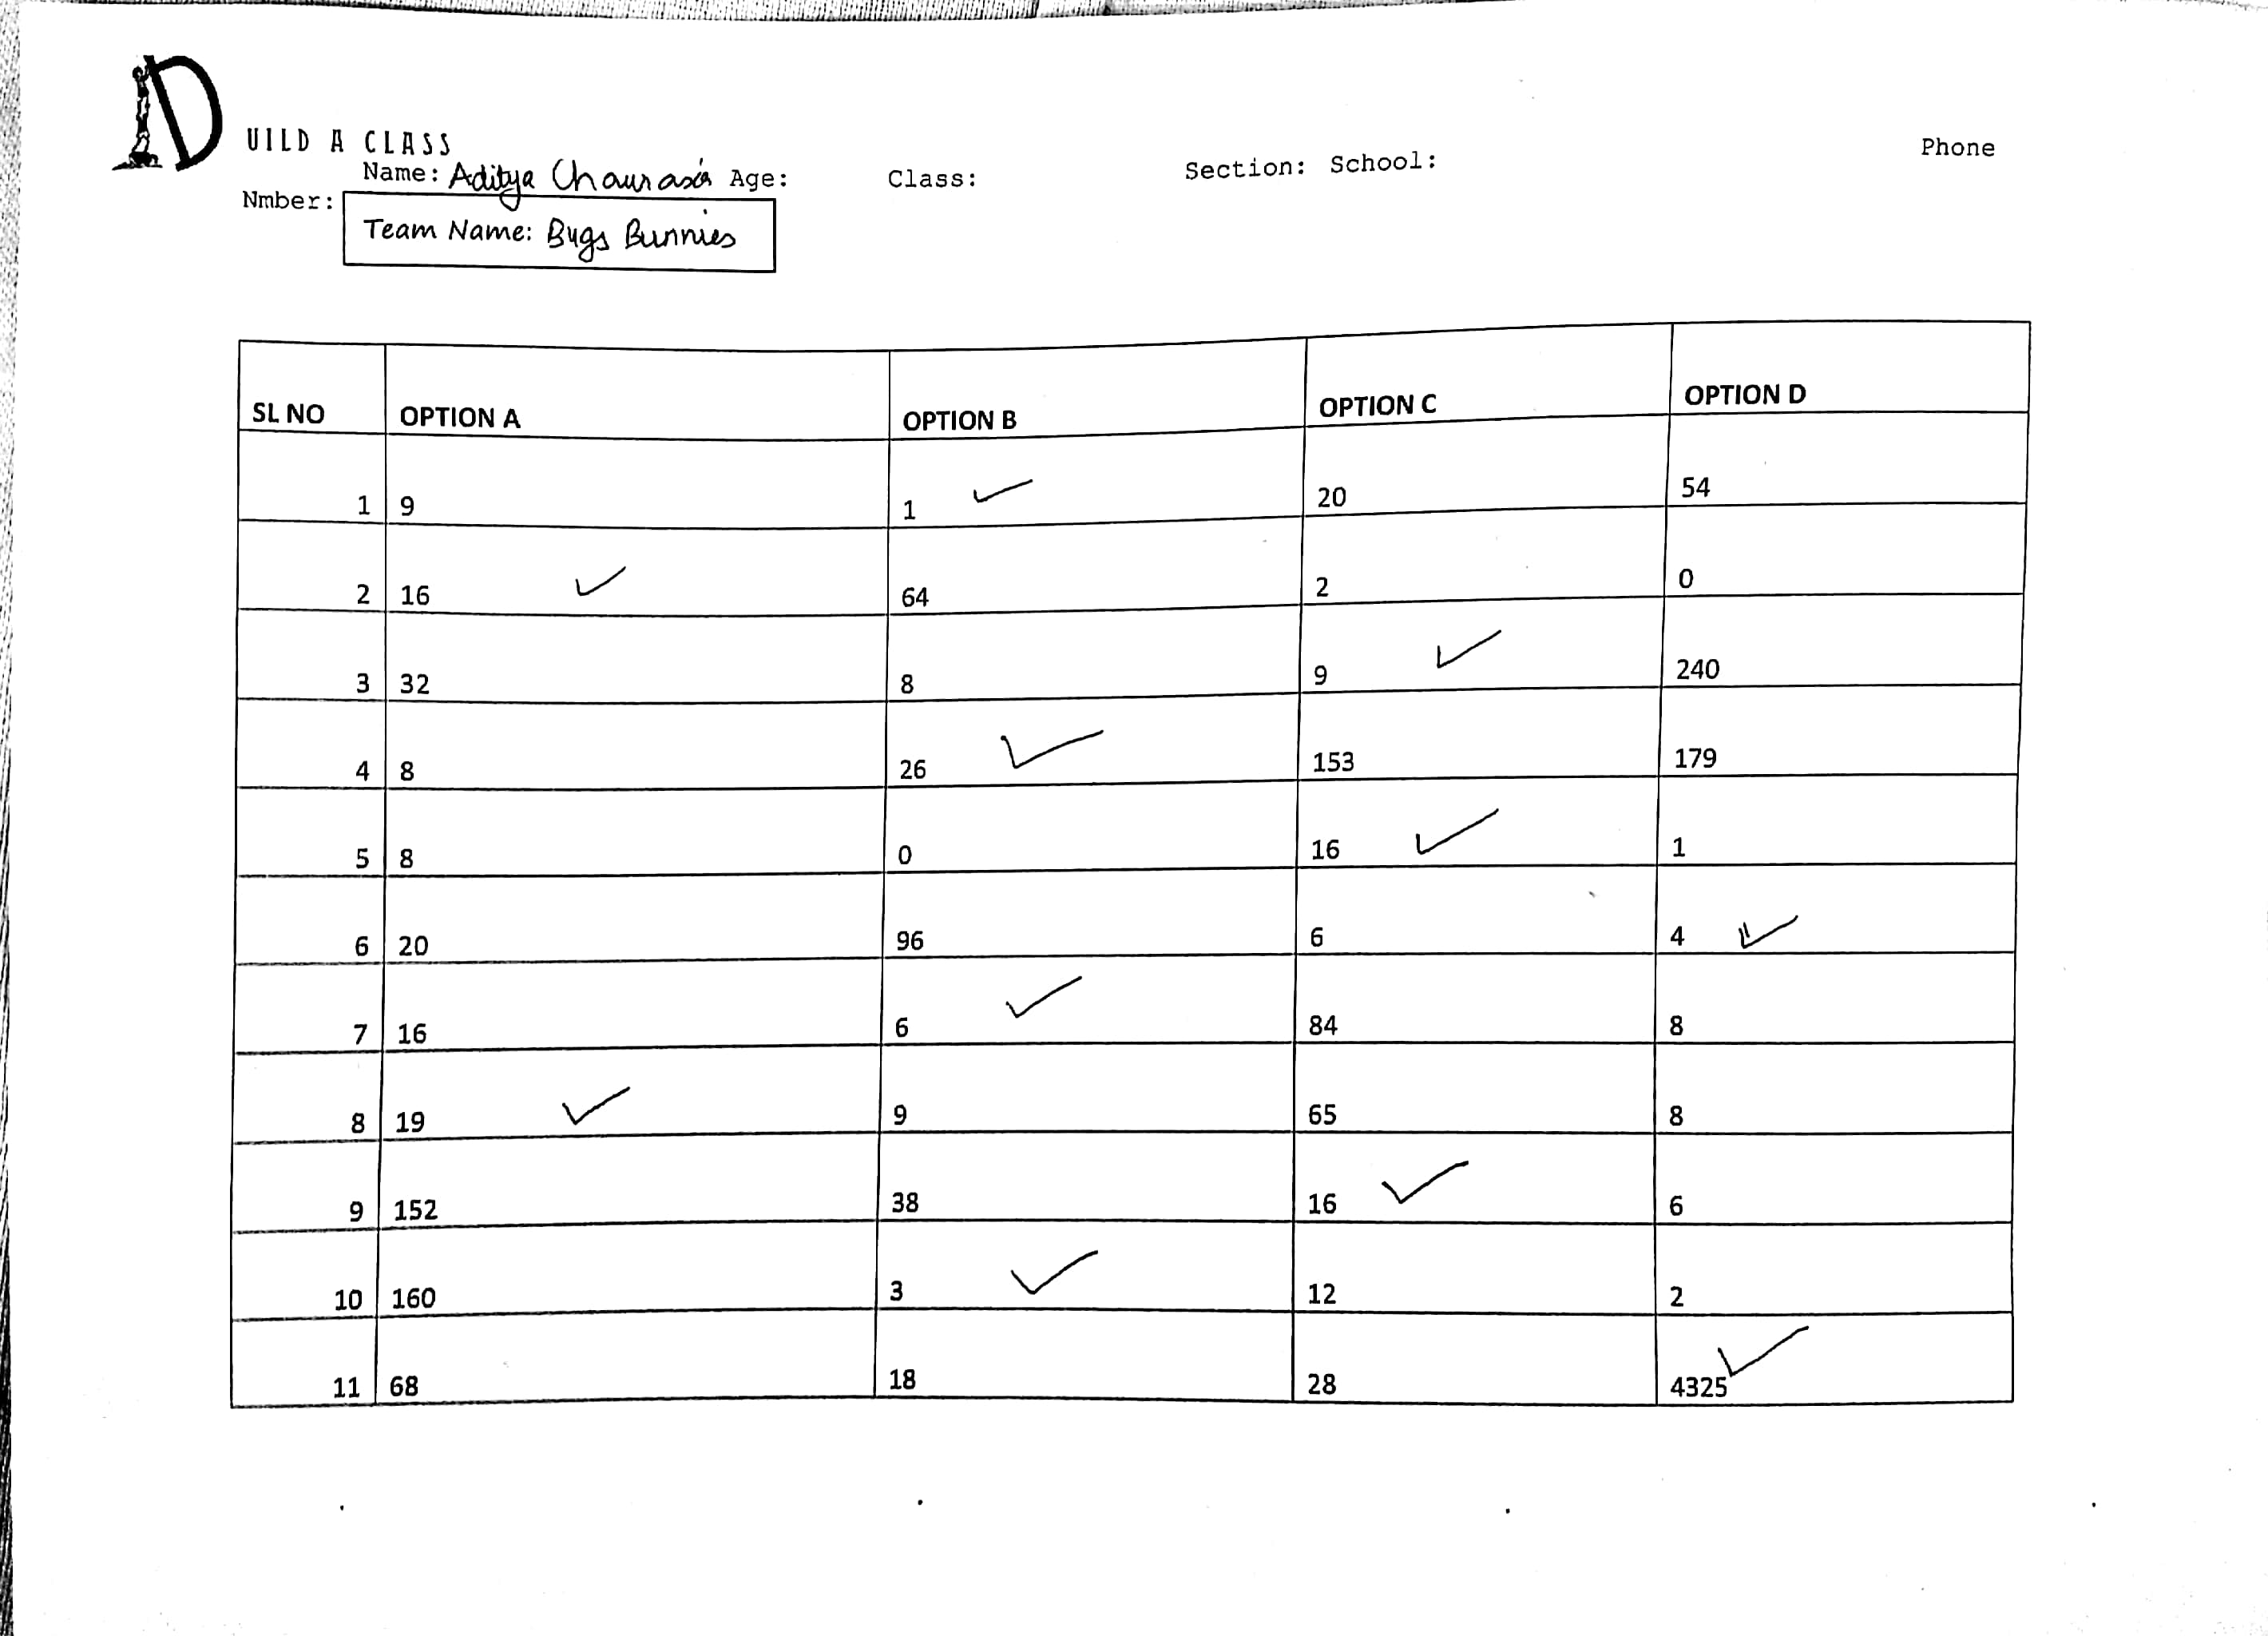 D UILD A CLASS
Name: Aditya Chaurasia Age: Class: Section: School: Phone
Nmber:
Team Name: Bugs Bunnies
SL NO OPTION A OPTION B OPTION C OPTION D
1 9 1 ✓ 20 54
2 16 ✓ 64 2 0
3 32 8 9 ✓ 240
4 8 26 ✓ 153 179
5 8 0 16 ✓ 1
6 20 96 6 4 ✓
7 16 6 ✓ 84 8
8 19 ✓ 9 65 8
9 152 38 16 ✓ 6
10 160 3 ✓ 12 2
11 68 18 28 4325 ✓